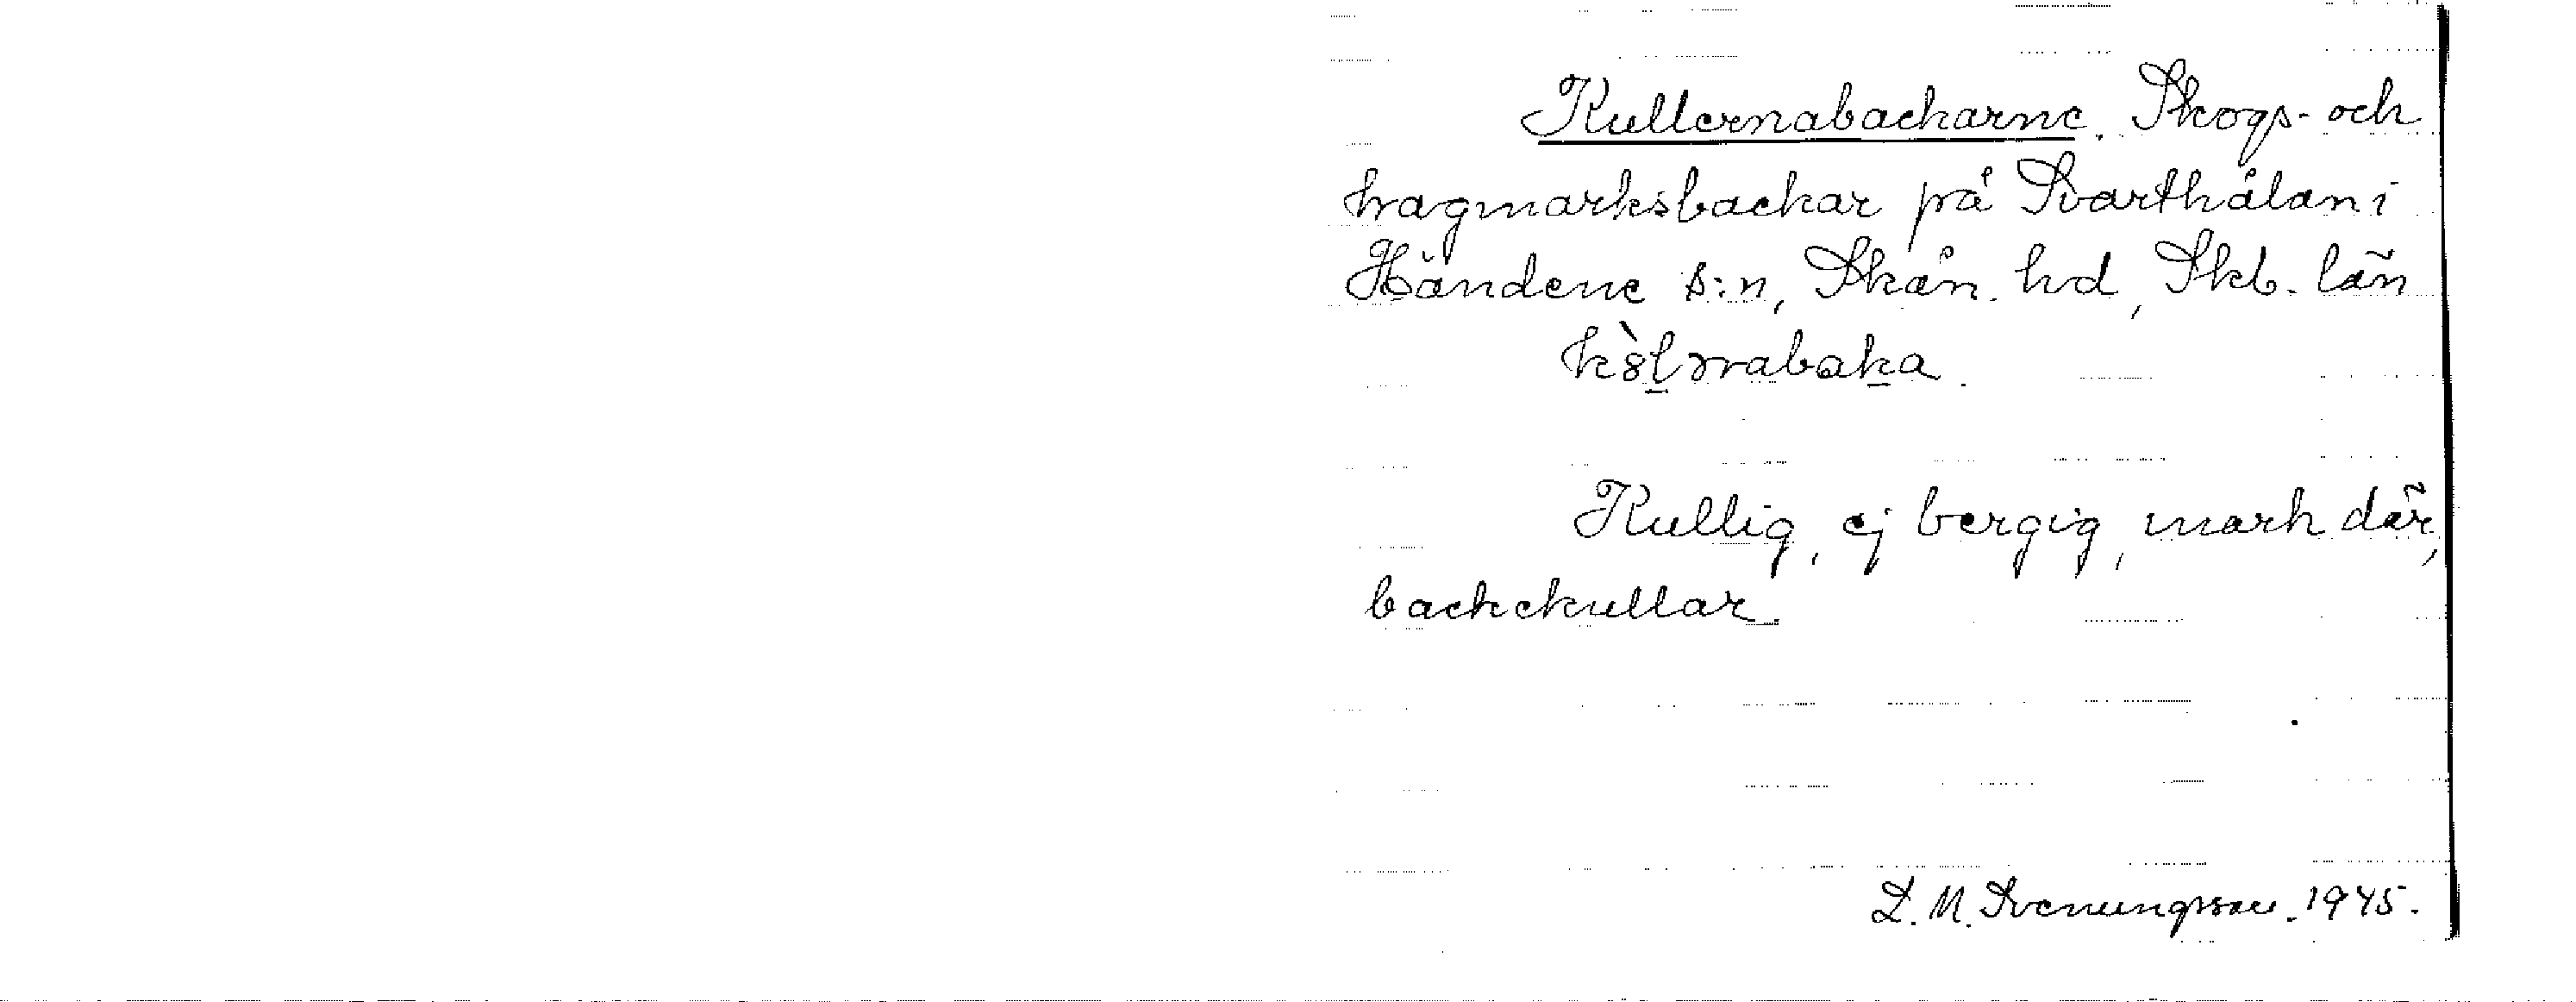 Kullernabackarne. Skogs- och
hagmarksbackar på Svarthålan i
Händene s:n, Skån. hd, Skb. län

Kullig, ej bergig, mark där,
backekullar.
L. M. Svenungsson. 1945.